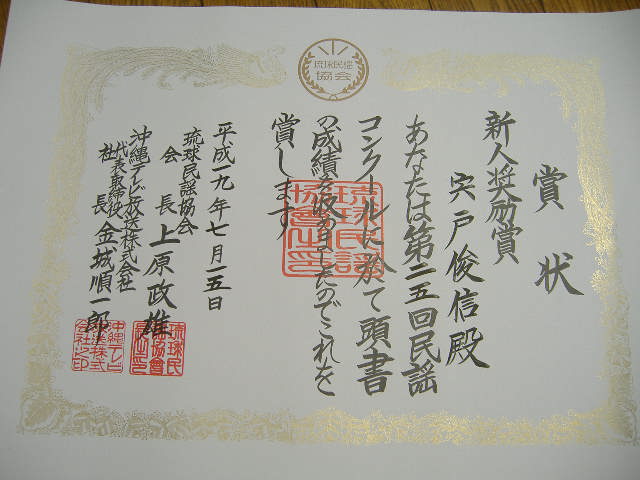 琉球民謡
協会
賞状
新人奨励賞
宍戸俊信殿
あなたは第二五回民謡
コンクールに於て頭書
の成績を収めましたのでこれを
賞します
平成一九年七月一五日
琉球民謡協会
会長 上原政雄
沖縄テレビ放送株式会社
代表取締役
社長 金城順一郎
琉球民謡
協會之印
琉球民
謡協會
長之印
沖縄テレビ
放送株式
会社之印